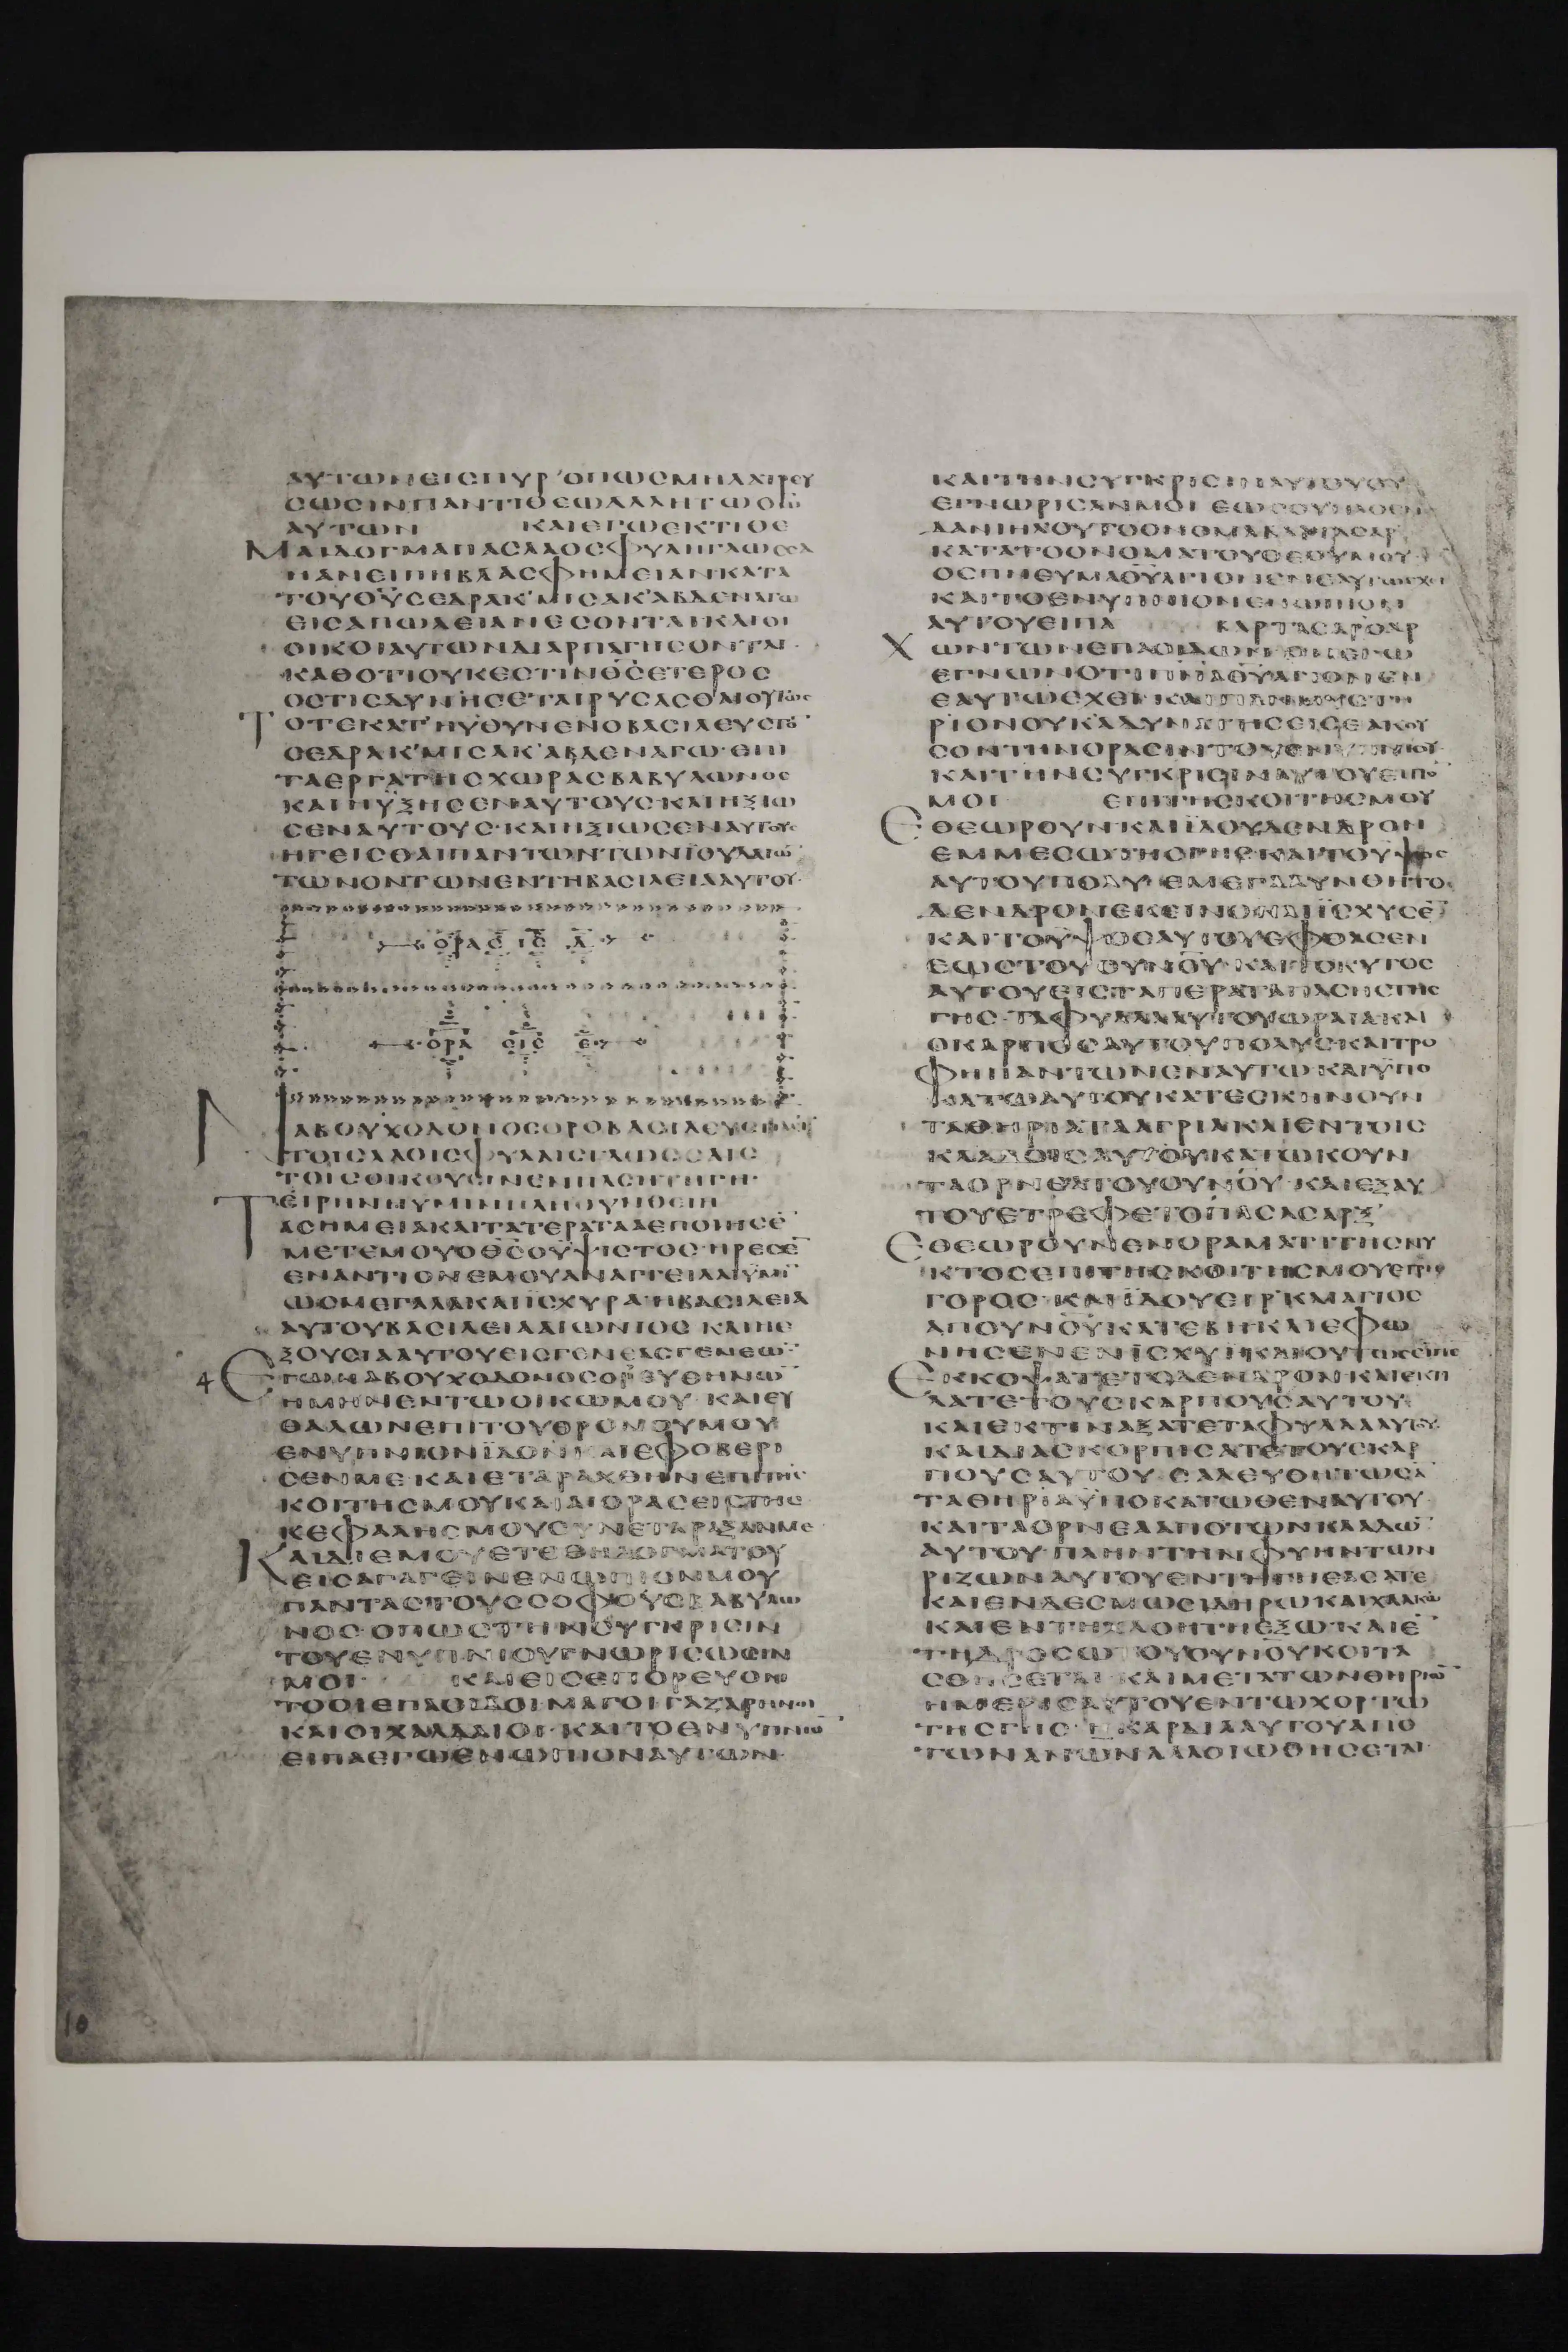 ΑΥΤΩΝΕΙСΠΥΡ ΟΠΩСΜΗΛΑΤΡΕΥ
СΩСΙΝΠΑΝΤΙΘΕΩΑΛΛΗΤΩΘΩ
ΑΥΤΩΝ ΚΑΙΕΓΩΕΚΤΙΘΕ
ΜΑΙΔΟΓΜΑΠΑСΛΑΟСΦΥΛΗΓΛΩССΑ
ΗΑΝΕΙΠΗΒΛΑСΦΗΜΕΙΑΝΚΑΤΑ
ΤΟΥΘΥСΕΔΡΑΚ ΜΙСΑΚ ΑΒΔΕΝΑΓΩ
ΕΙСΑΠΩΛΕΙΑΝΕСΟΝΤΑΙΚΑΙΟΙ
ΟΙΚΟΙΑΥΤΩΝΔΙΑΡΠΑΓΗСΟΝΤΑΙ
ΚΑΘΟΤΙΟΥΚΕСΤΙΝΘСΕΤΕΡΟС
ΟСΤΙСΔΥΝΗСΕΤΑΙΡΥСΑСΘΑΙΟΥΤΩС
ΤΟΤΕΚΑΤΗΥΘΥΝΕΝΟΒΑСΙΛΕΥСΤΟ
СΕΔΡΑΚ ΜΙСΑΚ ΑΒΔΕΝΑΓΩ ΕΠΙ
ΤΑΕΡΓΑΤΗСΧΩΡΑСΒΑΒΥΛΩΝΟС
ΚΑΙΗΥΞΗСΕΝΑΥΤΟΥС ΚΑΙΗΞΙΩ
СΕΝΑΥΤΟΥС ΚΑΙΗΞΙΩСΕΝΑΥΤΟΥС
ΗΓΕΙСΘΑΙΠΑΝΤΩΝΤΩΝΙΟΥΔΑΙΩ
ΤΩΝΟΝΤΩΝΕΝΤΗΒΑСΙΛΕΙΑΑΥΤΟΥ
ΟΡΑС ΙС Δ
ΟΡΑ СΙС Ε
ΝΑΒΟΥΧΟΔΟΝΟСΟΡΟΒΑСΙΛΕΥС
ΤΟΙСΛΑΟΙСΦΥΛΑΙСΓΛΩССΑΙС
ΤΟΙСΟΙΚΟΥСΙΝΕΝΠΑСΗΤΗΓΗ
ΕΙΡΗΝΗΥΜΙΝΠΛΗΘΥΝΘΕΙΗ
ΤΑСΗΜΕΙΑΚΑΙΤΑΤΕΡΑΤΑΑΕΠΟΙΗСΕ
ΜΕΤΕΜΟΥΟΘСΟΥΨΙСΤΟС ΗΡΕСΕ
ΕΝΑΝΤΙΟΝΕΜΟΥΑΝΑΓΓΕΙΛΑΙΥΜΙ
ΩСΜΕΓΑΛΑΚΑΙΙСΧΥΡΑ ΗΒΑСΙΛΕΙΑ
ΑΥΤΟΥΒΑСΙΛΕΙΑΑΙΩΝΙΟС ΚΑΙΗΕ
ΞΟΥСΙΑΑΥΤΟΥΕΙСΓΕΝΕΑСΓΕΝΕΩ
4 ΕΓΩΝΑΒΟΥΧΟΔΟΝΟСΟΡΕΥΘΗΝΩ
ΗΜΗΝΕΝΤΩΟΙΚΩΜΟΥ ΚΑΙΕΥ
ΘΑΛΩΝΕΠΙΤΟΥΘΡΟΝΟΥΜΟΥ
ΕΝΥΠΝΙΟΝΙΔΟΝΚΑΙΕΦΟΒΕΡΙ
СΕΝΜΕ ΚΑΙΕΤΑΡΑΧΘΗΝΕΠΙΤΗС
ΚΟΙΤΗСΜΟΥΚΑΙΑΙΟΡΑСΕΙСΤΗС
ΚΕΦΑΛΗСΜΟΥСΥΝΕΤΑΡΑΞΑΝΜΕ
ΚΑΙΔΙΕΜΟΥΕΤΕΘΗΔΟΓΜΑΤΟΥ
ΕΙСΑΓΑΓΕΙΝΕΝΩΠΙΟΝΜΟΥ
ΠΑΝΤΑСΤΟΥССΟΦΟΥСΒΑΒΥΛΩ
ΝΟС ΟΠΩСΤΗΝСΥΓΚΡΙСΙΝ
ΤΟΥΕΝΥΠΝΙΟΥΓΝΩΡΙСΩСΙΝ
ΜΟΙ ΚΑΙΕΙСΕΠΟΡΕΥΟΝ
ΤΟΟΙΕΠΑΟΙΔΟΙΜΑΓΟΙΓΑΖΑΡΗΝΟΙ
ΚΑΙΟΙΧΑΛΔΑΙΟΙ ΚΑΙΤΟΕΝΥΠΝΙΟ
ΕΙΠΑΕΓΩΕΝΩΠΙΟΝΑΥΤΩΝ
ΚΑΙΤΗΝСΥΓΚΡΙСΙΝΑΥΤΟΥΟΥ
ΕΓΝΩΡΙСΑΝΜΟΙ ΕΩСΟΥ
ΔΑΝΙΗΛΟΥΤΟΟΝΟΜΑΒΑΛΤΑСΑΡ
ΚΑΤΑΤΟΟΝΟΜΑΤΟΥΘΕΟΥΜΟΥ
ΟСΠΝΕΥΜΑΘΥΑΓΙΟΝΕΝΕΑΥΤΩΕΧΕΙ
ΚΑΙΤΟΕΝΥΠΝΙΟΝΕΝΩΠΙΟΝ
ΑΥΤΟΥΕΙΠΑ ΒΑΡΤΑСΑΡΟΑΡ
ΧΩΝΤΩΝΕΠΑΟΙΔΩΝΟΝΕΓΩ
ΕΓΝΩΝΟΤΙΠΝΑΘΥΑΓΙΟΝΕΝ
ΕΑΥΤΩΕΧΕΙ ΚΑΙΠΑΝΜΥСΤΗ
ΡΙΟΝΟΥΚΑΔΥΝΑΤΗСΕΙСΕ ΑΚΟΥ
СΟΝΤΗΝΟΡΑСΙΝΤΟΥΕΝΥΠΝΙΟΥ
ΚΑΙΤΗΝСΥΓΚΡΙСΙΝΑΥΤΟΥΕΙΠΟ
ΜΟΙ ΕΠΙΤΗСΚΟΙΤΗСΜΟΥ
ΕΘΕΩΡΟΥΝ ΚΑΙΙΔΟΥΔΕΝΔΡΟΝ
ΕΜΜΕСΩΤΗСΓΗС ΚΑΙΤΟΥΨΟС
ΑΥΤΟΥΠΟΛΥ ΕΜΕΓΑΛΥΝΘΗΤΟ
ΔΕΝΔΡΟΝΕΚΕΙΝΟΚΑΙΙСΧΥСΕ
ΚΑΙΤΟΥΨΟСΑΥΤΟΥΕΦΘΑСΕΝ
ΕΩСΤΟΥΟΥΝΟΥ ΚΑΙΤΟΚΥΤΟС
ΑΥΤΟΥΕΙСΤΑΠΕΡΑΤΑΠΑСΗСΤΗС
ΓΗС ΤΑΦΥΛΛΑΑΥΤΟΥΩΡΑΙΑΚΑΙ
ΟΚΑΡΠΟСΑΥΤΟΥΠΟΛΥСΚΑΙΤΡΟ
ΦΗΠΑΝΤΩΝΕΝΑΥΤΩ ΚΑΙΥΠΟ
ΚΑΤΩΑΥΤΟΥΚΑΤΕСΚΗΝΟΥΝ
ΤΑΘΗΡΙΑΤΑΑΓΡΙΑΚΑΙΕΝΤΟΙС
ΚΛΑΔΟΙСΑΥΤΟΥΚΑΤΩΚΟΥΝ
ΤΑΟΡΝΕΑΤΟΥΟΥΝΟΥ ΚΑΙΕΞΑΥ
ΤΟΥΕΤΡΕΦΕΤΟΠΑСΑСΑΡΞ
ΕΘΕΩΡΟΥΝΕΝΟΡΑΜΑΤΙΤΗСΝΥ
ΚΤΟСΕΠΙΤΗСΚΟΙΤΗСΜΟΥ
ΓΟΡΟС ΚΑΙΙΔΟΥΕΙΡ ΚΑΙΑΓΙΟС
ΑΠΟΥΝΟΥΚΑΤΕΒΗΚΑΙΕΦΩ
ΝΗСΕΝΕΝΙСΧΥΙΚΑΙΟΥΤΩСΕΙΠΕ
ΕΚΚΟΨΑΤΕΤΟΔΕΝΔΡΟΝΚΑΙΕΚΤΙ
ΛΑΤΕΤΟΥСΚΑΡΠΟΥСΑΥΤΟΥ
ΚΑΙΕΚΤΙΝΑΞΑΤΕΤΑΦΥΛΛΑΑΥΤΟΥ
ΚΑΙΔΙΑСΚΟΡΠΙСΑΤΕΤΟΥСΚΑΡ
ΠΟΥСΑΥΤΟΥ СΑΛΕΥΘΗΤΩСΑ
ΤΑΘΗΡΙΑΥΠΟΚΑΤΩΘΕΝΑΥΤΟΥ
ΚΑΙΤΑΟΡΝΕΑΑΠΟΤΩΝΚΛΑΔΩ
ΑΥΤΟΥ ΠΛΗΝΤΗΝΦΥΗΝΤΩΝ
ΡΙΖΩΝΑΥΤΟΥΕΝΤΗΓΗΕΑСΑΤΕ
ΚΑΙΕΝΔΕСΜΩСΙΔΗΡΩΚΑΙΧΑΛΚΩ
ΚΑΙΕΝΤΗΧΛΟΗΤΗΕΞΩΚΑΙΕ
ΤΗΔΡΟСΩΤΟΥΟΥΝΟΥΚΟΙΤΑ
СΘΗСΕΤΑΙ ΚΑΙΜΕΤΑΤΩΝΘΗΡΙΩ
ΗΜΕΡΙСΑΥΤΟΥΕΝΤΩΧΟΡΤΩ
ΤΗСΓΗС Η ΚΑΡΔΙΑΑΥΤΟΥΑΠΟ
ΤΩΝΑΝΩΝΑΛΛΟΙΩΘΗСΕΤΑΙ
10